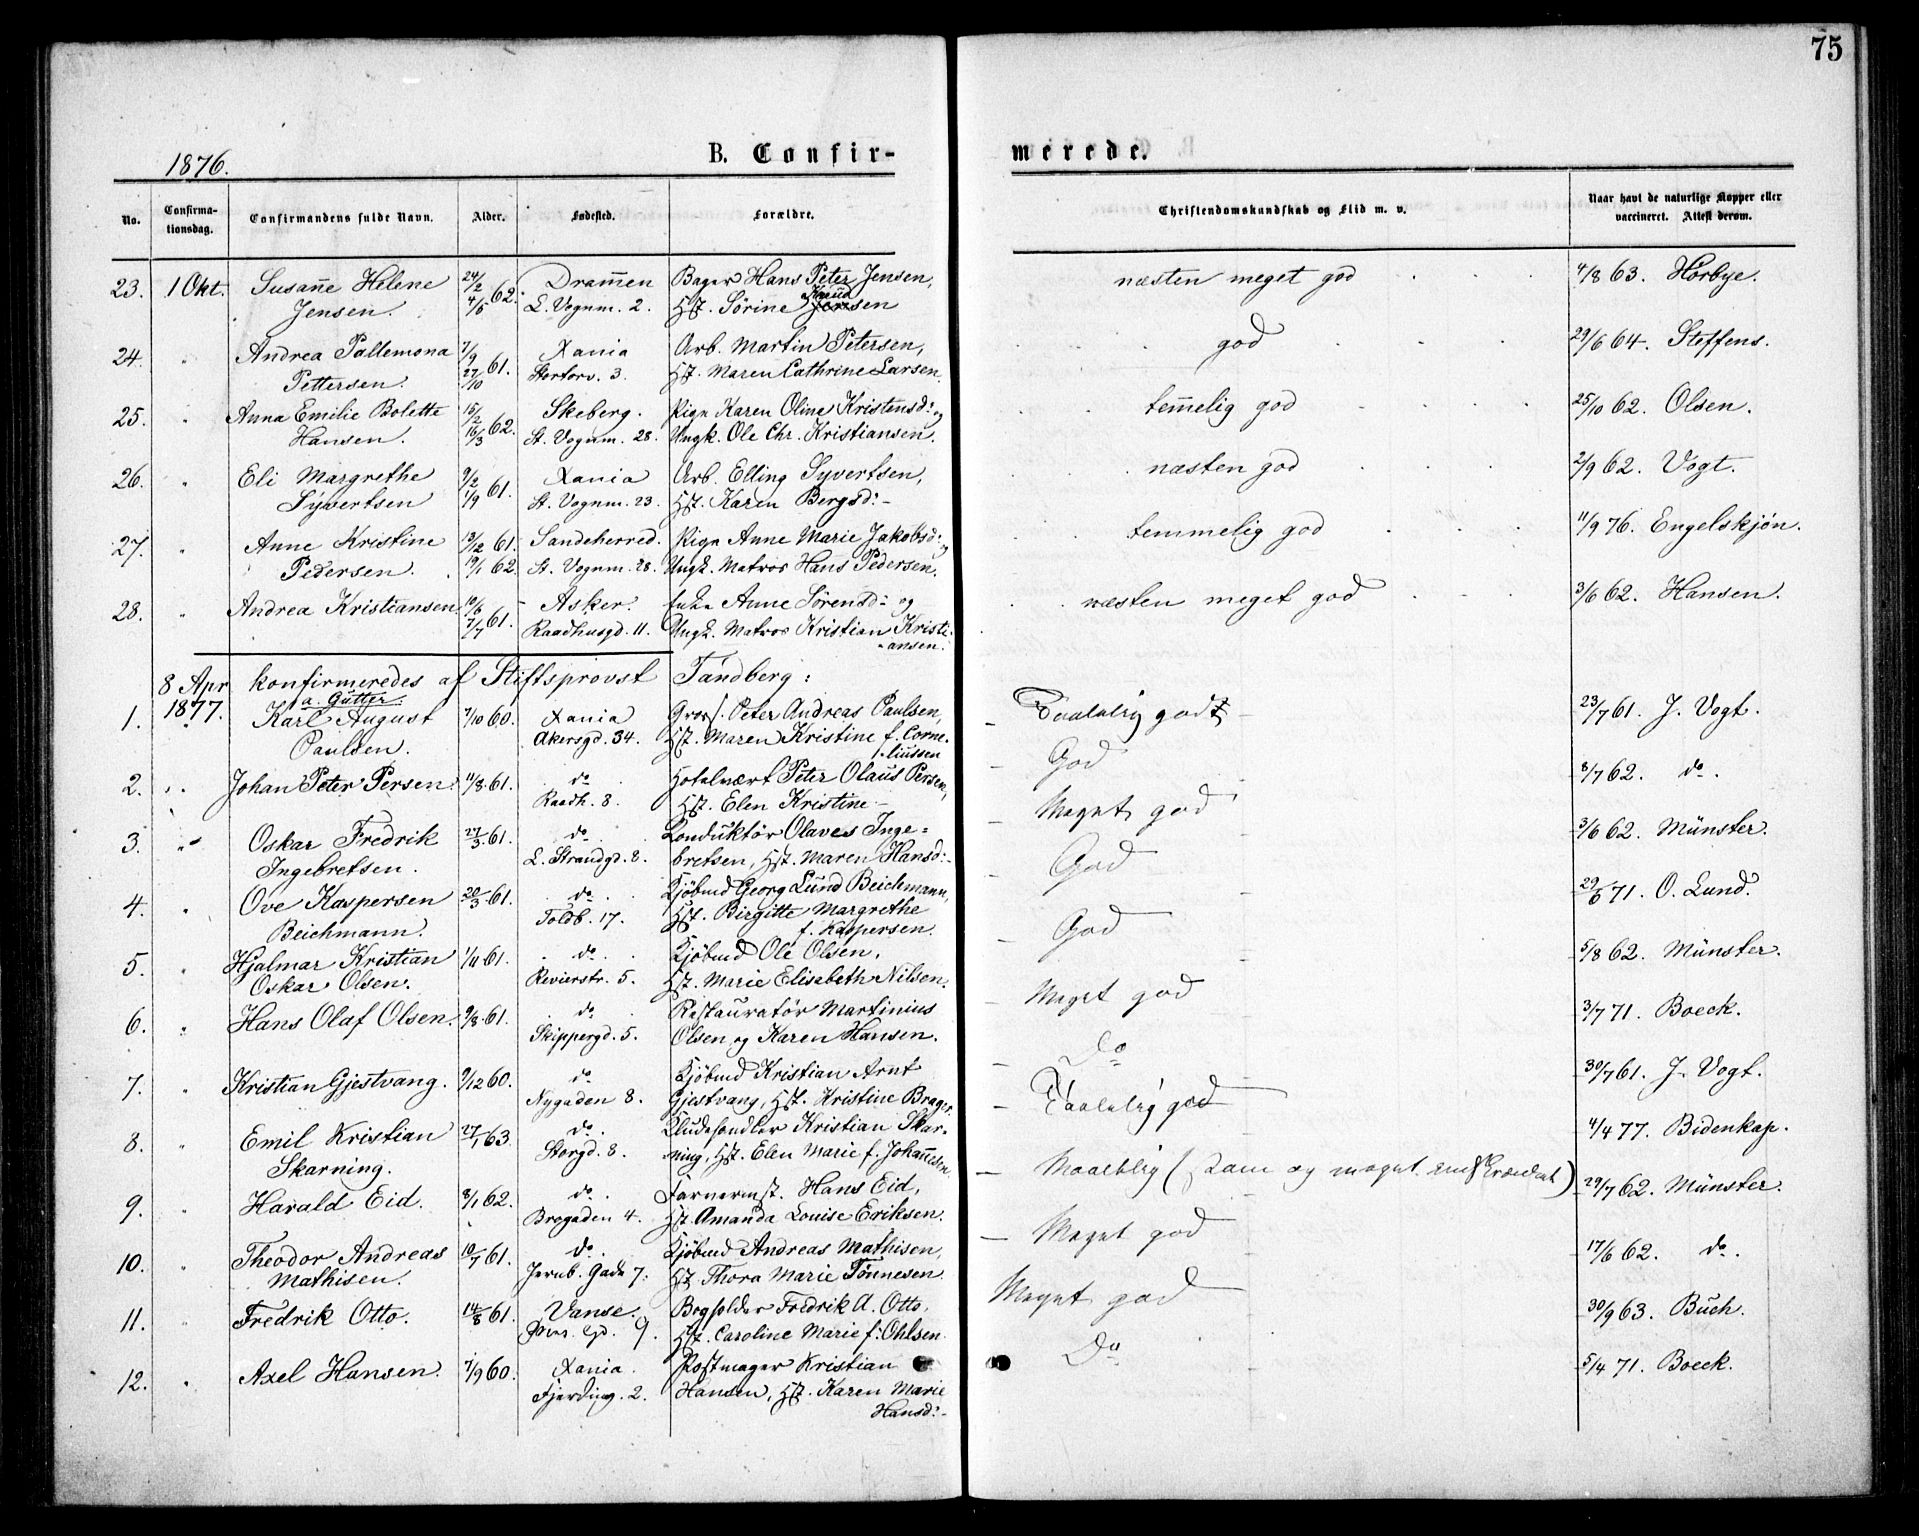 75
1876.
B. Confir-
merede.
No.
Confirma-
tionsdag.
Confirmandens fulde Navn.
Alder.
Fødested.
Forældre.
Christendomskundskab og Flid m. v.
Naar havt de naturlige Kopper eller
vaccineret. Attest derom.
23. 1 Okt. Susañe Helene 24/2 62. Dram̃en Bager Hans Peter Jensen, næsten meget god 4/8 63. Hørbye.
Jensen. 4/5 L. Vognm. 2. Hst. Sørine Jensen
24. " Andrea Pallemona 7/9 61. Xania Arb. Martin Petersen, god 29/6 64. Steffens.
Pettersen. 27/10 Stortorv. 3. Hst. Maren Cathrine Larsen.
25. " Anna Emilie Bolette 15/2 62. Skeberg. Pige Karen Oline Kristensd: og tem̃elig god 25/10 62. Olsen.
Hansen. 16/3 St. Vognm. 28. Ungk. Ole Chr. Kristiansen.
26. " Eli Margrethe 9/2 61. Xania Arb. Elling Syvertsen, næsten god 2/9 62. Vogt.
Syvertsen 1/9 St. Vognm. 23. Hst. Karen Bergsd:-
27. " Anne Kristine 13/12 61. Sandeherred. Pige Anne Marie Jakobsd: og temmelig god 11/9 76. Engelskjøn.
Pedersen. 19/1 62. St. Vognm. 28. Ungk. Matros Hans Pedersen.
28. " Andrea Kristiansen 10/6 61. Asker. Enke Anne Sørensd:- og næsten meget god 3/6 62. Hansen.
7/7 Raadhusgd. 11. Ungk. Matros Kristian Kristi-
ansen.
8 Apr konfirmeredes af Stiftsprovst Tandberg:
1877. a. Gutter.
1. " Karl August 7/10 60. Xania Gross. Peter Andreas Paulsen, Taalelig godt 23/7 61. J. Vogt.
Paulsen. Akersgd. 34. Hst. Maren Kristine f. Corne-
liussen
2. " Johan Peter Persen. 11/8 61. do Hotelvært Peter Olaus Persen, God 8/7 62. do.
Raadh. 8. Hst. Elen Kristine-
3. " Oskar Fredrik 27/3 61. do Konduktør Olaves Inge- Meget god 3/6 62. Münster.
Ingebretsen. L. Strandgd. 8. bretsen, Hst. Maren Hansd:-
4. " Ove Kaspersen 20/3 61. do Kjøbmd Georg Lund Beichmann, God 29/6 71. O. Lund.
Beichmann. Toldb. 17. Hst. Birgitte Margrethe
f. Kaspersen.
5. " Hjalmar Kristian 1/11 61. do. Kjøbmd Ole Olsen, God 5/8 62. Münster.
Oskar Olsen. Revierstr. 5. Hst. Marie Elisabeth Nilsen.
6. " Hans Olaf Olsen. 9/8 61. do. Restauratør Martinius Meget god 3/7 71. Boeck.
Skippergd. 5. Olsen og Karen Hansen.
7. " Kristian Gjestvang. 9/12 60. do Kjøbmd Kristian Arnt Do 30/7 61. J. Vogt.
Nygaden 8. Gjestvang, Hst. Kristine Brager.
8. " Emil Kristian 27/7 63. do. Kludehandler Kristian Skar- Taalelig god 4/4 77. Bidenkap.
Skarning. Storgd. 8. ning, Hst. Elen Marie f. Johan̄esen
9. " Harald Eid. 8/1 62. do. Farvermst. Hans Eid, Maadelig (Tam og meget 29/7 62. Münster.
Brogaden 4. Hst. Amanda Louise Eriksen.
10. " Theodor Andreas 10/7 61. do. Kjøbmd Andreas Mathisen, Meget god 17/6 62. do.
Mathisen. Jernb. Gade 7. Hst. Thora Marie Tønnesen
11. " Fredrik Otto. 14/8 61. Vanse. Bogholder Fredrik A. Otto, Meget god 30/9 63. Buch.
9. Hst. Caroline Marie f: Ohlsen.
12. " Axel Hansen. 7/9 60. Xania. Postmager Kristian Do 5/4 71. Boeck.
Fjerding. 2. Hansen, Hst. Karen Marie
Hansd:-